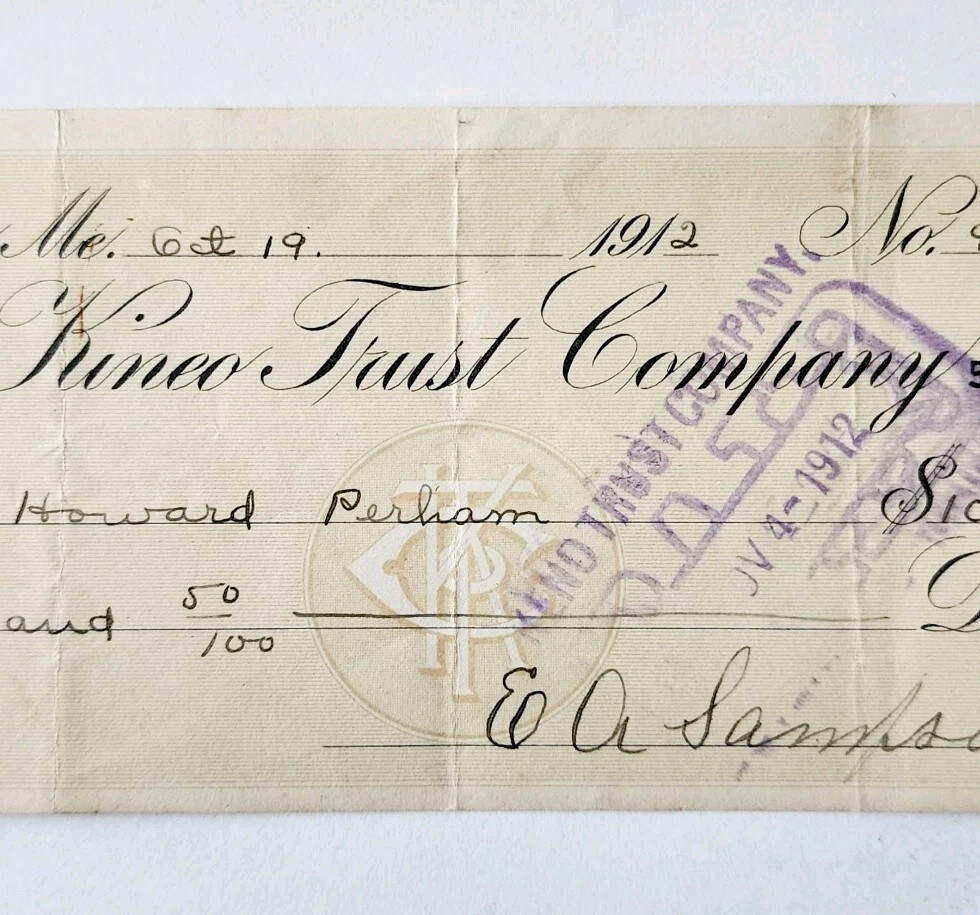 Me. Oct 19. 1912 No.
Kineo Trust Company
Howard Perham $10
and 50/100
E A Sampso
TRUST COMPANY.
4-1912
KTC